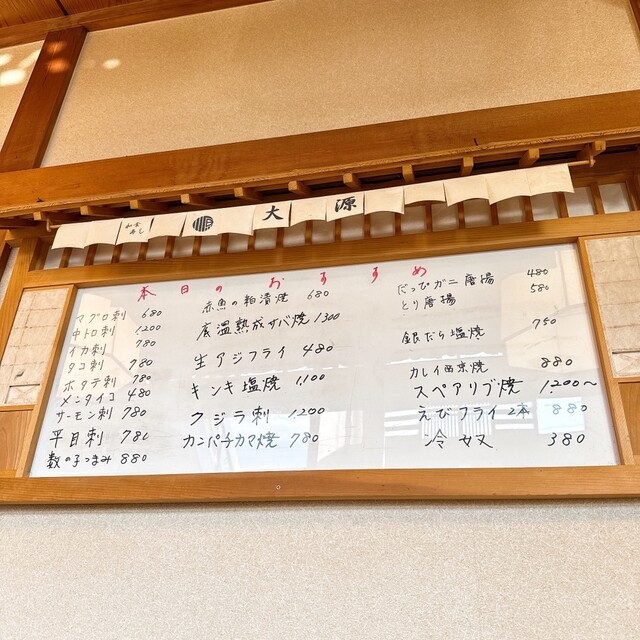 和食
寿し
大源
本日のおすすめ
マグロ刺 680
中トロ刺 1,200
イカ刺 780
タコ刺 780
ホタテ刺 780
メンタイコ 480
サーモン刺 780
平目刺 780
数の子つまみ 880
赤魚の粕漬焼 680
底温熟成サバ焼 1,300
生アジフライ 480
キンキ塩焼 1,100
クジラ刺 1,200
カンパチカマ焼 780
だっぴガニ唐揚 480
とり唐揚 580
銀だら塩焼 750
カレイ西京焼 880
スペアリブ焼 1,200〜
えびフライ2本 880
冷ヤヌ 380